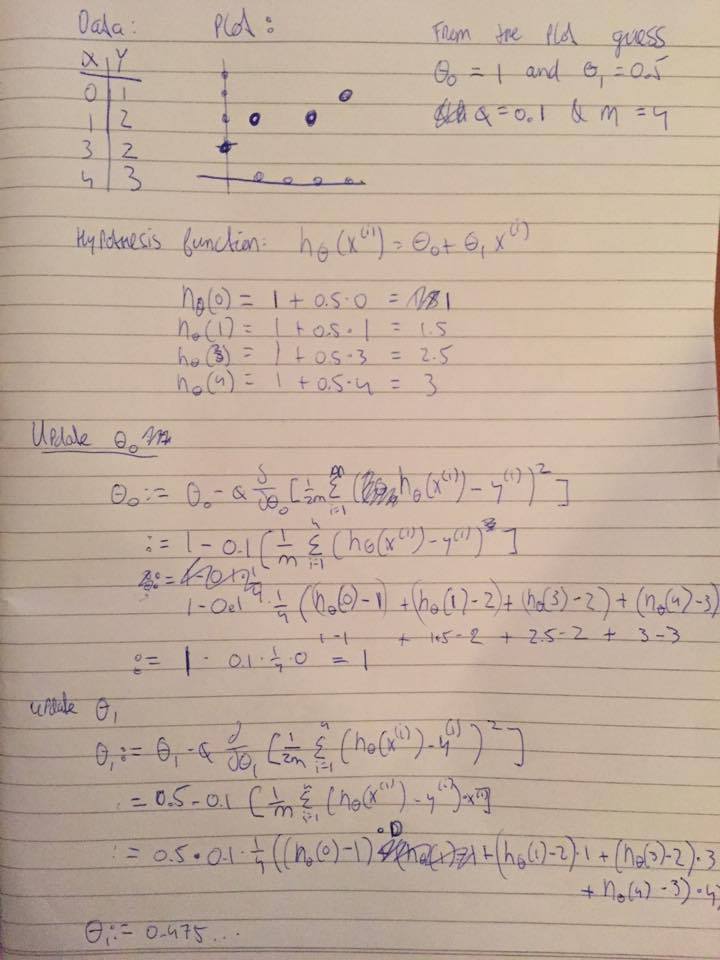 Data:
Plot:
From the Plot guess
θ₀ = 1 and θ₁ = 0.5
α = 0.1 & m = 4
X | Y
0 | 1
1 | 2
3 | 2
4 | 3
Hypothesis function: h_θ(x⁽ⁱ⁾) = θ₀ + θ₁ x⁽ⁱ⁾
h_θ(0) = 1 + 0.5·0 = 1
h_θ(1) = 1 + 0.5·1 = 1.5
h_θ(3) = 1 + 0.5·3 = 2.5
h_θ(4) = 1 + 0.5·4 = 3
Update θ₀
θ₀ := θ₀ - α ∂/∂θ₀ [1/2m Σ i=1 (h_θ(x⁽ⁱ⁾) - y⁽ⁱ⁾)²]
:= 1 - 0.1 [1/m Σ⁴ i=1 (h_θ(x⁽ⁱ⁾) - y⁽ⁱ⁾)]
1 - 0.1 · 1/4 ((h_θ(0) - 1) + (h_θ(1) - 2) + (h_θ(3) - 2) + (h_θ(4) - 3)
1-1 + 1.5-2 + 2.5-2 + 3-3
:= 1 - 0.1 · 1/4 · 0 = 1
update θ₁
θ₁ := θ₁ - α ∂/∂θ₁ [1/2m Σ⁴ i=1 (h_θ(x⁽ⁱ⁾) - y⁽ⁱ⁾)²]
:= 0.5 - 0.1 [1/m Σⁿ i=1 (h_θ(x⁽ⁱ⁾) - y⁽ⁱ⁾)·x⁽ⁱ⁾]
:= 0.5 · 0.1 · 1/4 ((h_θ(0) - 1)·0 + (h_θ(1) - 2)·1 + (h_θ(3) - 2)·3
+ h_θ(4) - 3)·4)
θ₁ := 0.475...